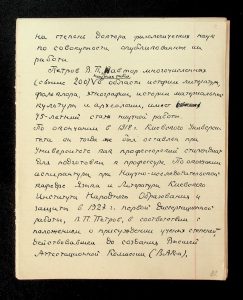 на степень Доктора филологических наук
по совокупности опубликованных им
работ.
Петров В.П., автор многочисленных
(свыше 200) в области истории литературы,
фольклора, этнографии, истории материальной
культуры и археологии, имеет
45-летний стаж научной работы.
По окончании в 1918 г. Киевского Универси-
тета он тогда же был оставлен при
Университете как профессорский стипендиат
для подготовки к профессуре. По окончании
аспирантуры при Научно-исследовательской
кафедре Языка и Литературы Киевского
Института Народного Образования и
защиты в 1927 г. первой Диссертационной
работы, В.П. Петров, в соответствии с
положением о присуждении ученых степеней
действовавшем до создания Высшей
Аттестационной Комиссии (ВАКа),